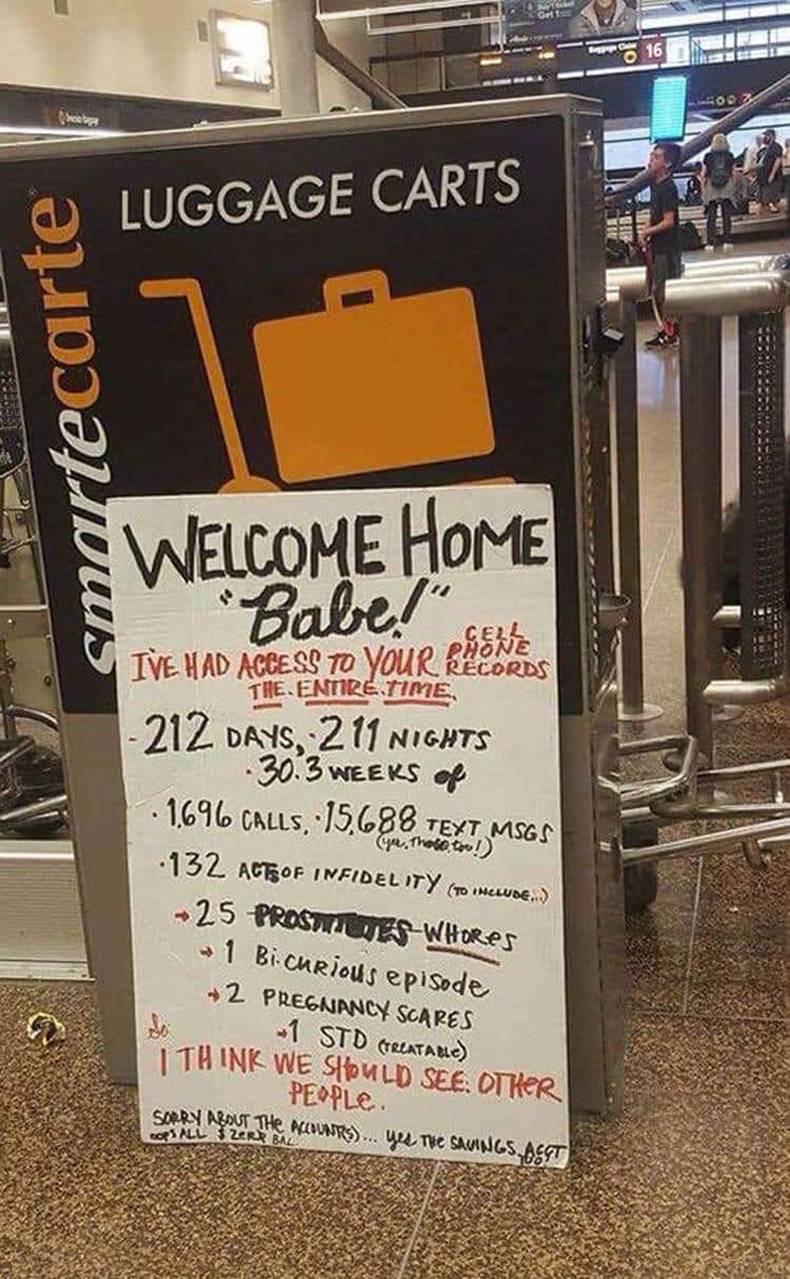 Get
Baggage Claim 16
LUGGAGE CARTS
smartecarte
WELCOME HOME
"Babe!"
I'VE HAD ACCESS TO YOUR CELL PHONE RECORDS
THE ENTIRE TIME.
- 212 DAYS, · 211 NIGHTS
· 30.3 WEEKS of
· 1,696 CALLS, · 15,688 TEXT MSGS
(yes, those too!)
· 132 ACTS OF INFIDELITY (TO INCLUDE...)
→ 25 PROSTITUTES WHORES
→ 1 Bi-CURIOUS episode
→ 2 PREGNANCY SCARES
→ 1 STD (TREATABLE)
So
I THINK WE SHOULD SEE OTHER
PEOPLE.
SORRY ABOUT THE ACCOUNT(S)... yes THE SAVINGS ACCT
oops ALL $ ZERO BAL. TOO!